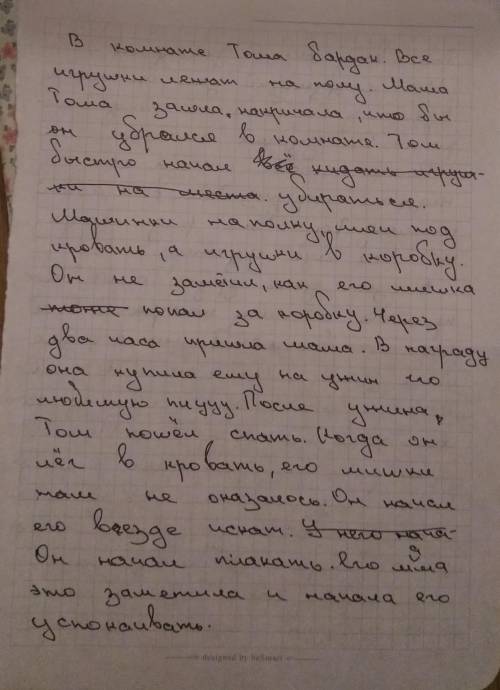 В комнате Тома бардак. Все
игрушки лежат на полу. Мама
Тома зашла, накричала, что бы
он убрался в комнате. Том
быстро начал всё кидать игруш-
ки на места. убираться.
Машинки на полку, мячи под
кровать, а игрушки в коробку.
Он не заметил, как его мишка
тоже попал за коробку. Через
два часа пришла мама. В награду
она купила ему на ужин его
любимую пиццу. После ужина,
Том пошёл спать. Когда он
лёг в кровать, его мишки
там не оказалось. Он начал
его везде искат. У него нача-
Он начал плакать. Его мама
это заметила и начала его
успокаивать.
designed by beSmart